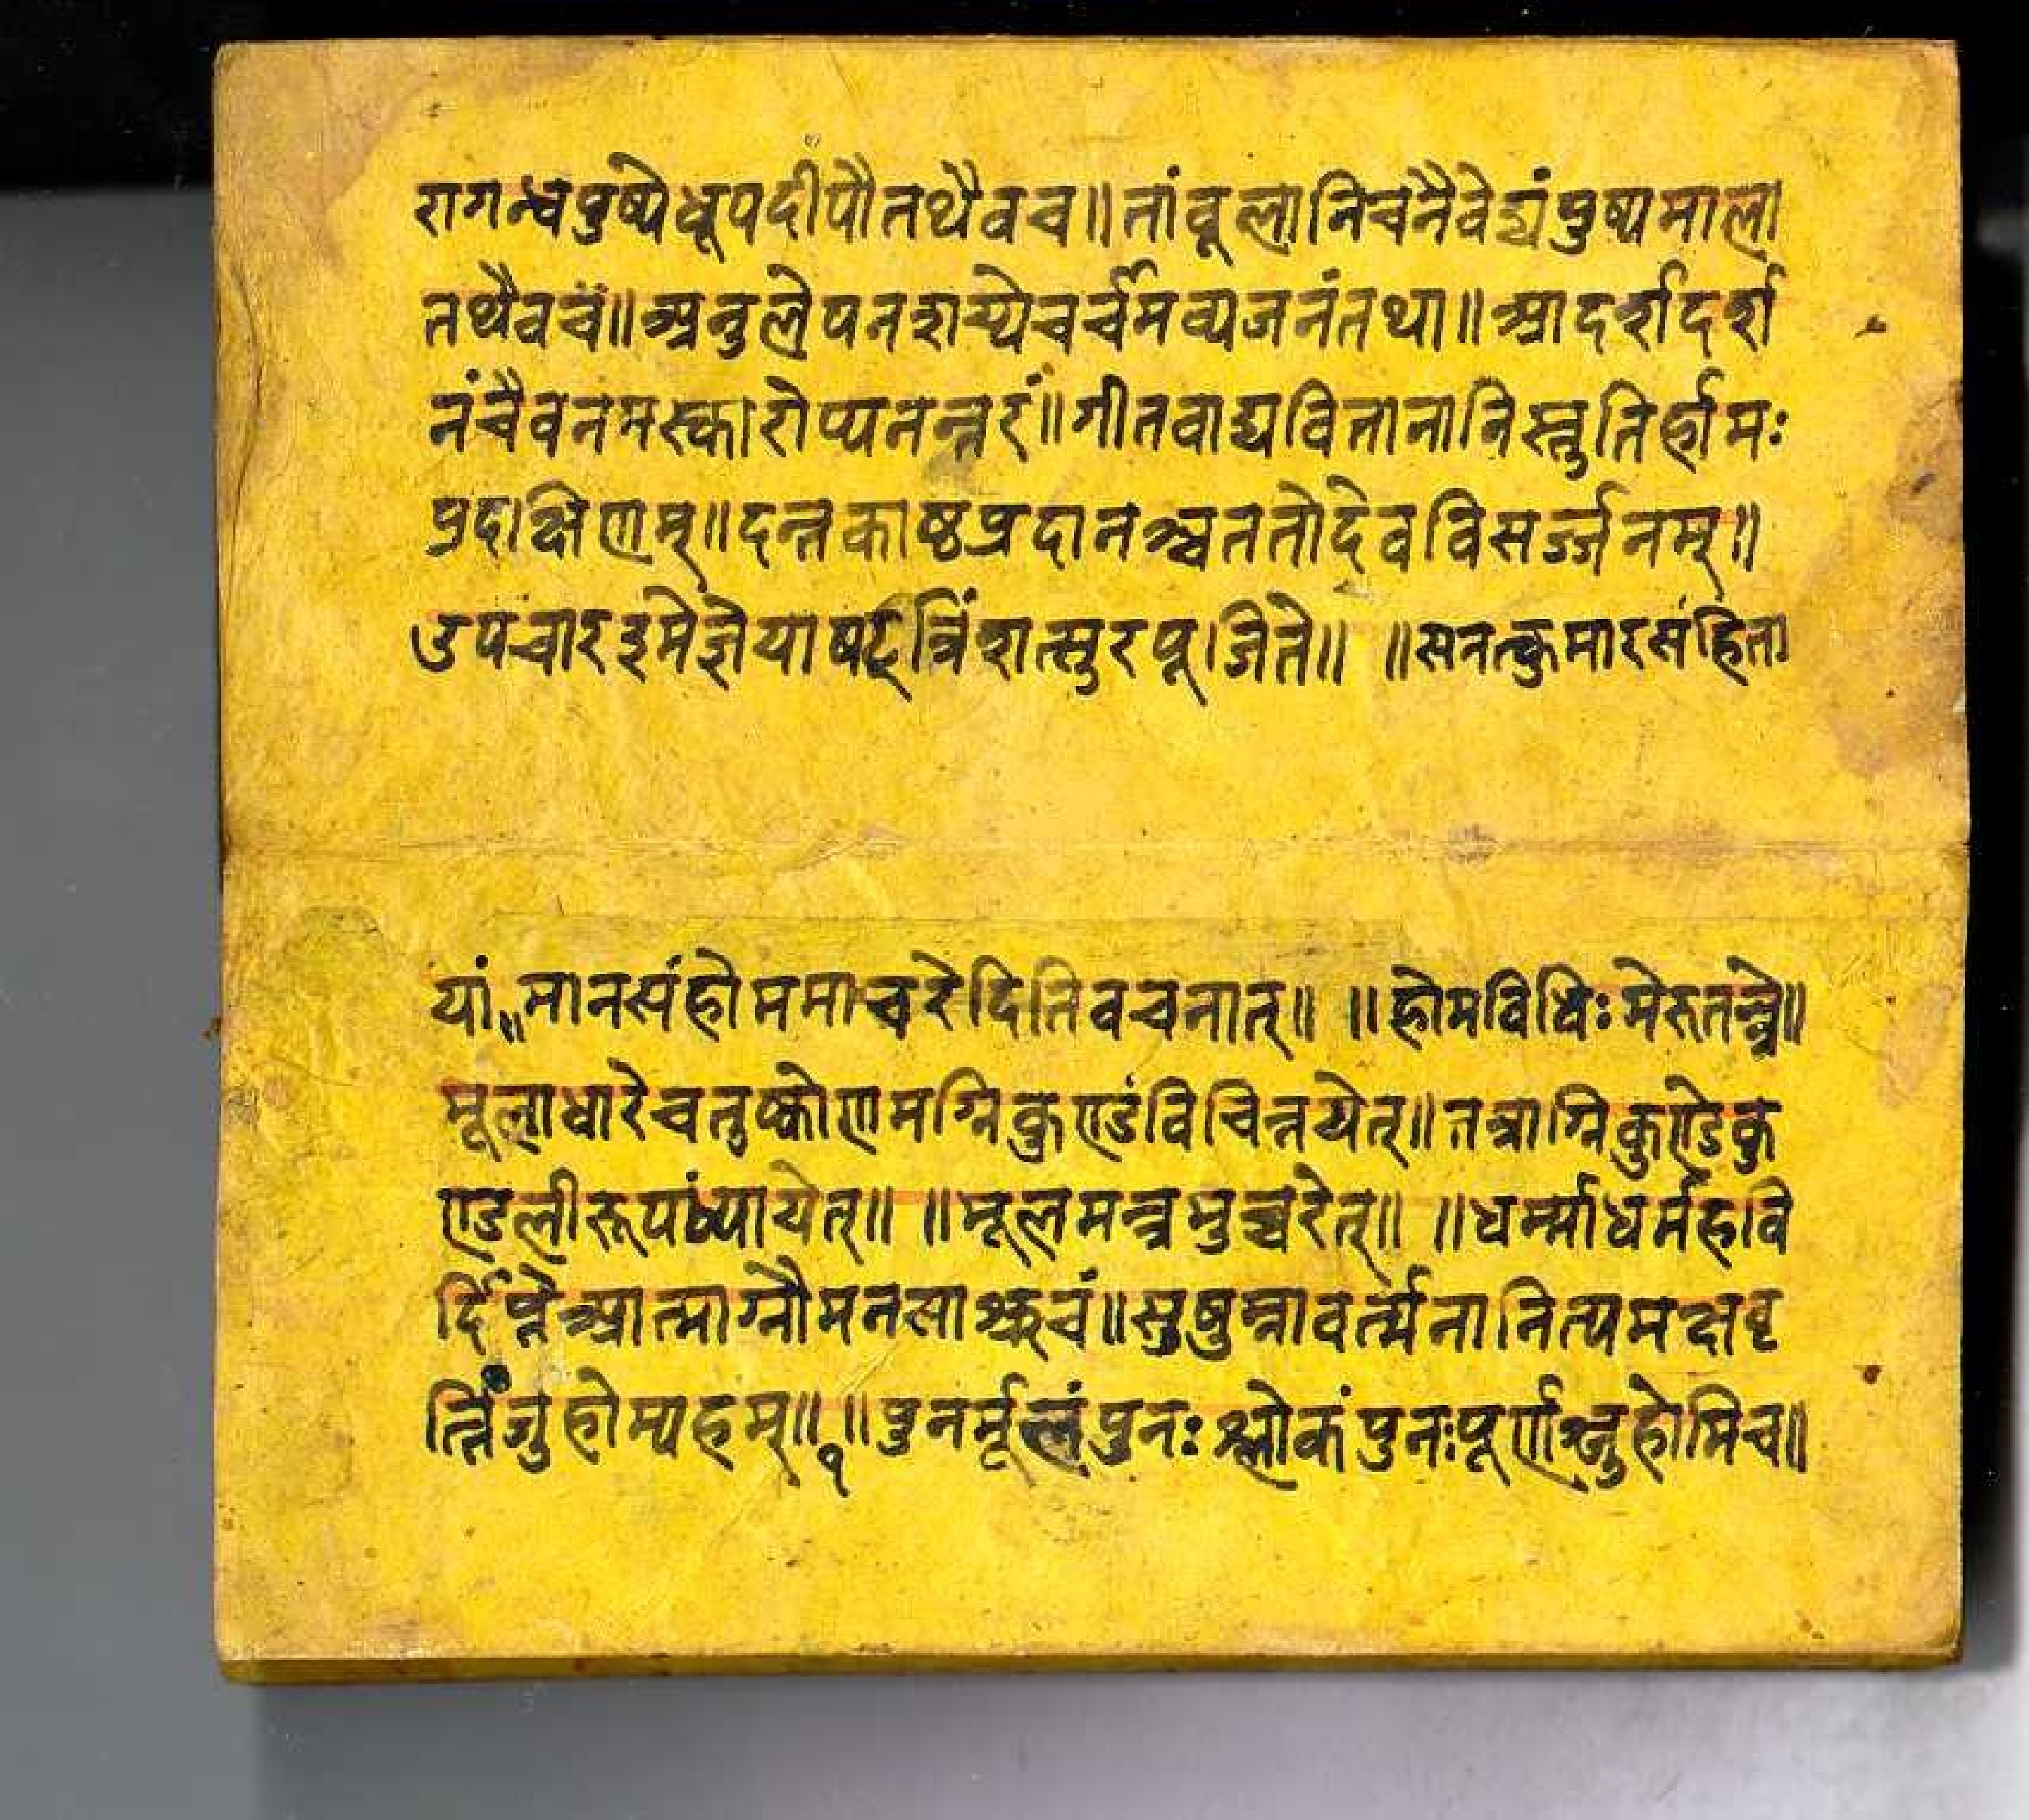 रागन्धपुष्पेधूपदीपौतथैवच॥तांवूलानिचनैवेद्यंपुष्पमाला
तथैवच॥अनुलेपनशय्येचर्चमव्यजनंतथा॥आदर्शदर्श
नंचैवनमस्कारोप्यनन्तरं॥गीतवाद्यवितानानिस्तुतिर्होमः
प्रदाक्षिणम्॥दन्तकाष्ठप्रदानञ्चततोदेवविसर्ज्जनम्॥
उपचारइमेज्ञेयाषट्त्रिंशत्सुरपूजिते॥ ॥सनत्कुमारसंहिता
यां॥मानसंहोममाचरेदितिवचनात्॥ ॥होमविधिःमेरुतन्त्रे॥
मूलाधारेचतुष्कोणमग्निकुण्डंविचिन्तयेत्॥तत्राग्निकुण्डेकु
ण्डलीरूपंध्यायेत्॥ ॥मूलमन्त्रमुच्चरेत्॥ ॥धर्म्माधर्महवि
र्दिप्तेआत्माग्नौमनसाश्रुचं॥सुषुम्नावर्त्मनानित्यमक्षवृ
त्तिंजुहोम्यहम्॥१॥पुनर्मूलंपुनःश्लोकंपुनःपूर्णाञ्जुहोमिच॥